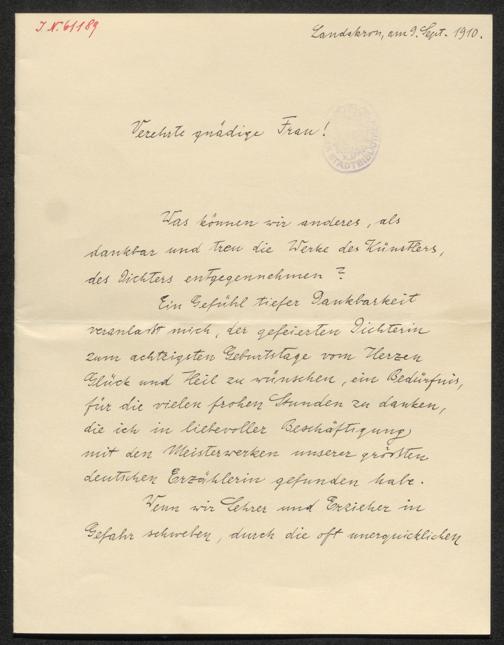 J. N. 61189
Landskron, am 9. Sept. 1910.
Verehrte gnädige Frau!
Was können wir anderes, als
dankbar und treu die Werke des Künstlers,
des Dichters entgegennehmen?
Ein Gefühl tiefer Dankbarkeit
veranlasst mich, der gefeierten Dichterin
zum achtzigsten Geburtstage vom Herzen
Glück und Heil zu wünschen, ein Bedürfnis,
für die vielen frohen Stunden zu danken,
die ich in liebevoller Beschäftigung
mit den Meisterwerken unserer größten
deutschen Erzählerin gefunden habe.
Wenn wir Lehrer und Erzieher in
Gefahr schweben, durch die oft unerquicklichen